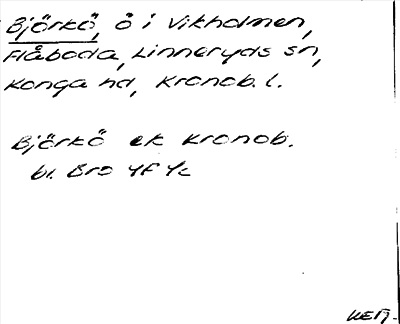 Björkö, ö i Vikholmen,
Flåboda, Linneryds sn,
Konga hd, Kronob. l.
Björkö ek Kronob.
bl. Bro 4f 4c